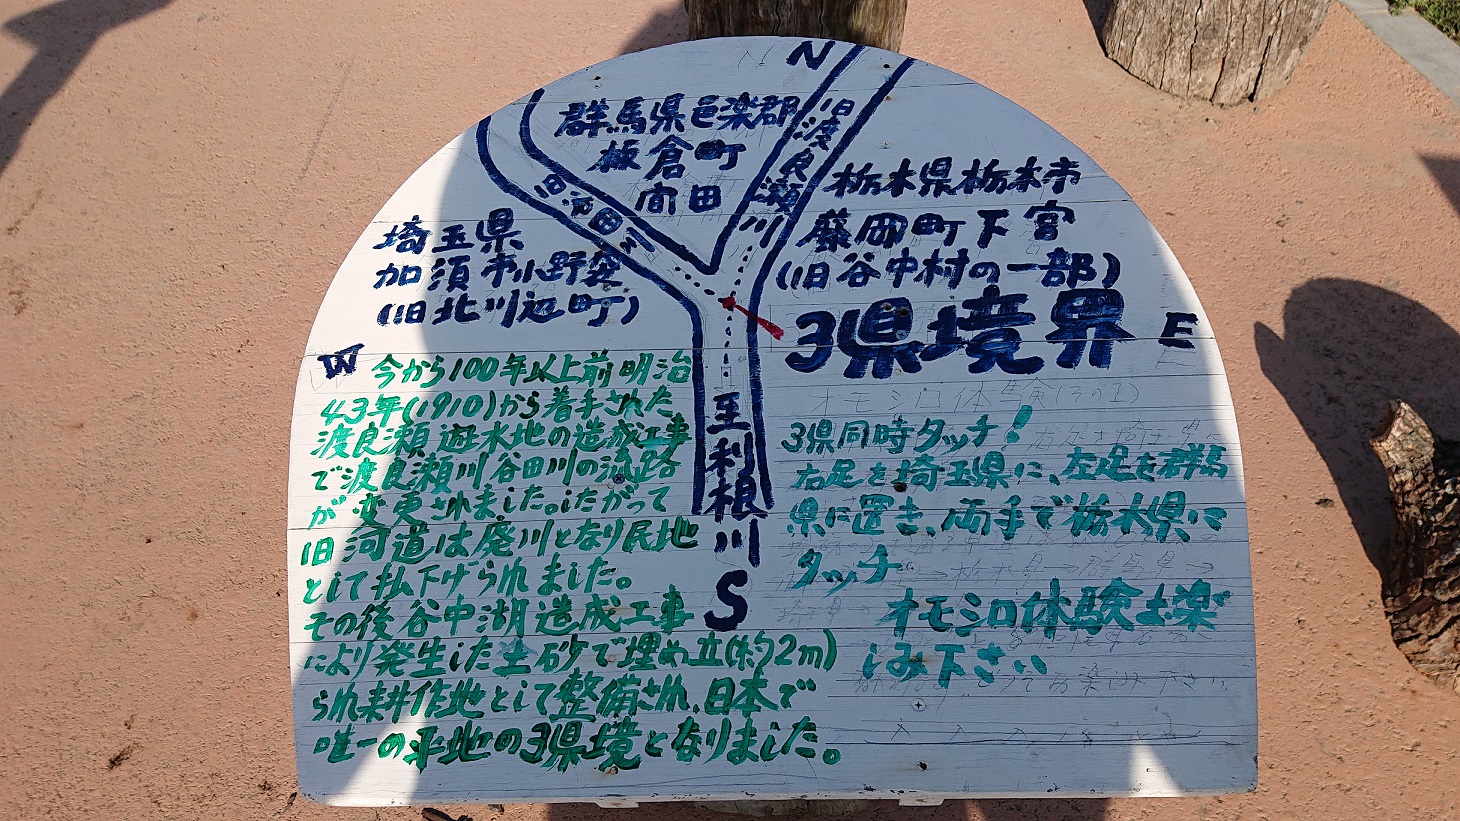 N
群馬県邑楽郡
板倉町
旧渡良瀬川
栃木県栃木市
藤岡町下宮
(旧谷中村の一部)
3県境界
E
埼玉県
加須市小野袋
(旧北川辺町)
W
今から100年以上前明治
43年(1910)から着手された
渡良瀬遊水地の造成工事
で渡良瀬川谷田川の流路
が変更されました。したがって
旧河道は廃川となり民地
として払下げられました。
その後谷中湖造成工事
により発生した土砂で埋め立(約2m)
られ耕作地として整備され、日本で
唯一の平地の3県境となりました。
利根川
S
オモシロ体験(その1)
3県同時タッチ!
右足を埼玉県に、左足を群馬
県に置き、両手で栃木県に
タッチ
オモシロ体験お楽
しみ下さい